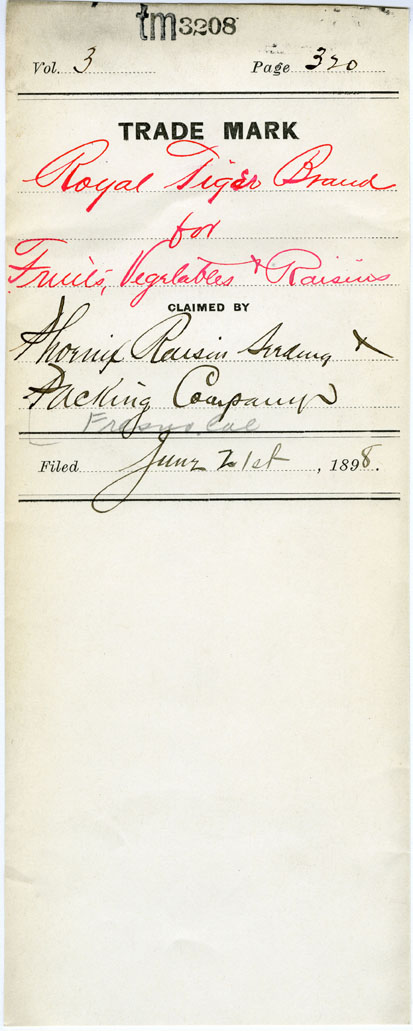 tm3208
Vol. 3 Page 320
TRADE MARK
Royal Tiger Brand
for
Fruits, Vegetables & Raisins
CLAIMED BY
Phoenix Raisin Seeding &
Packing Company
Fresno, Cal
Filed June 21st, 1898.